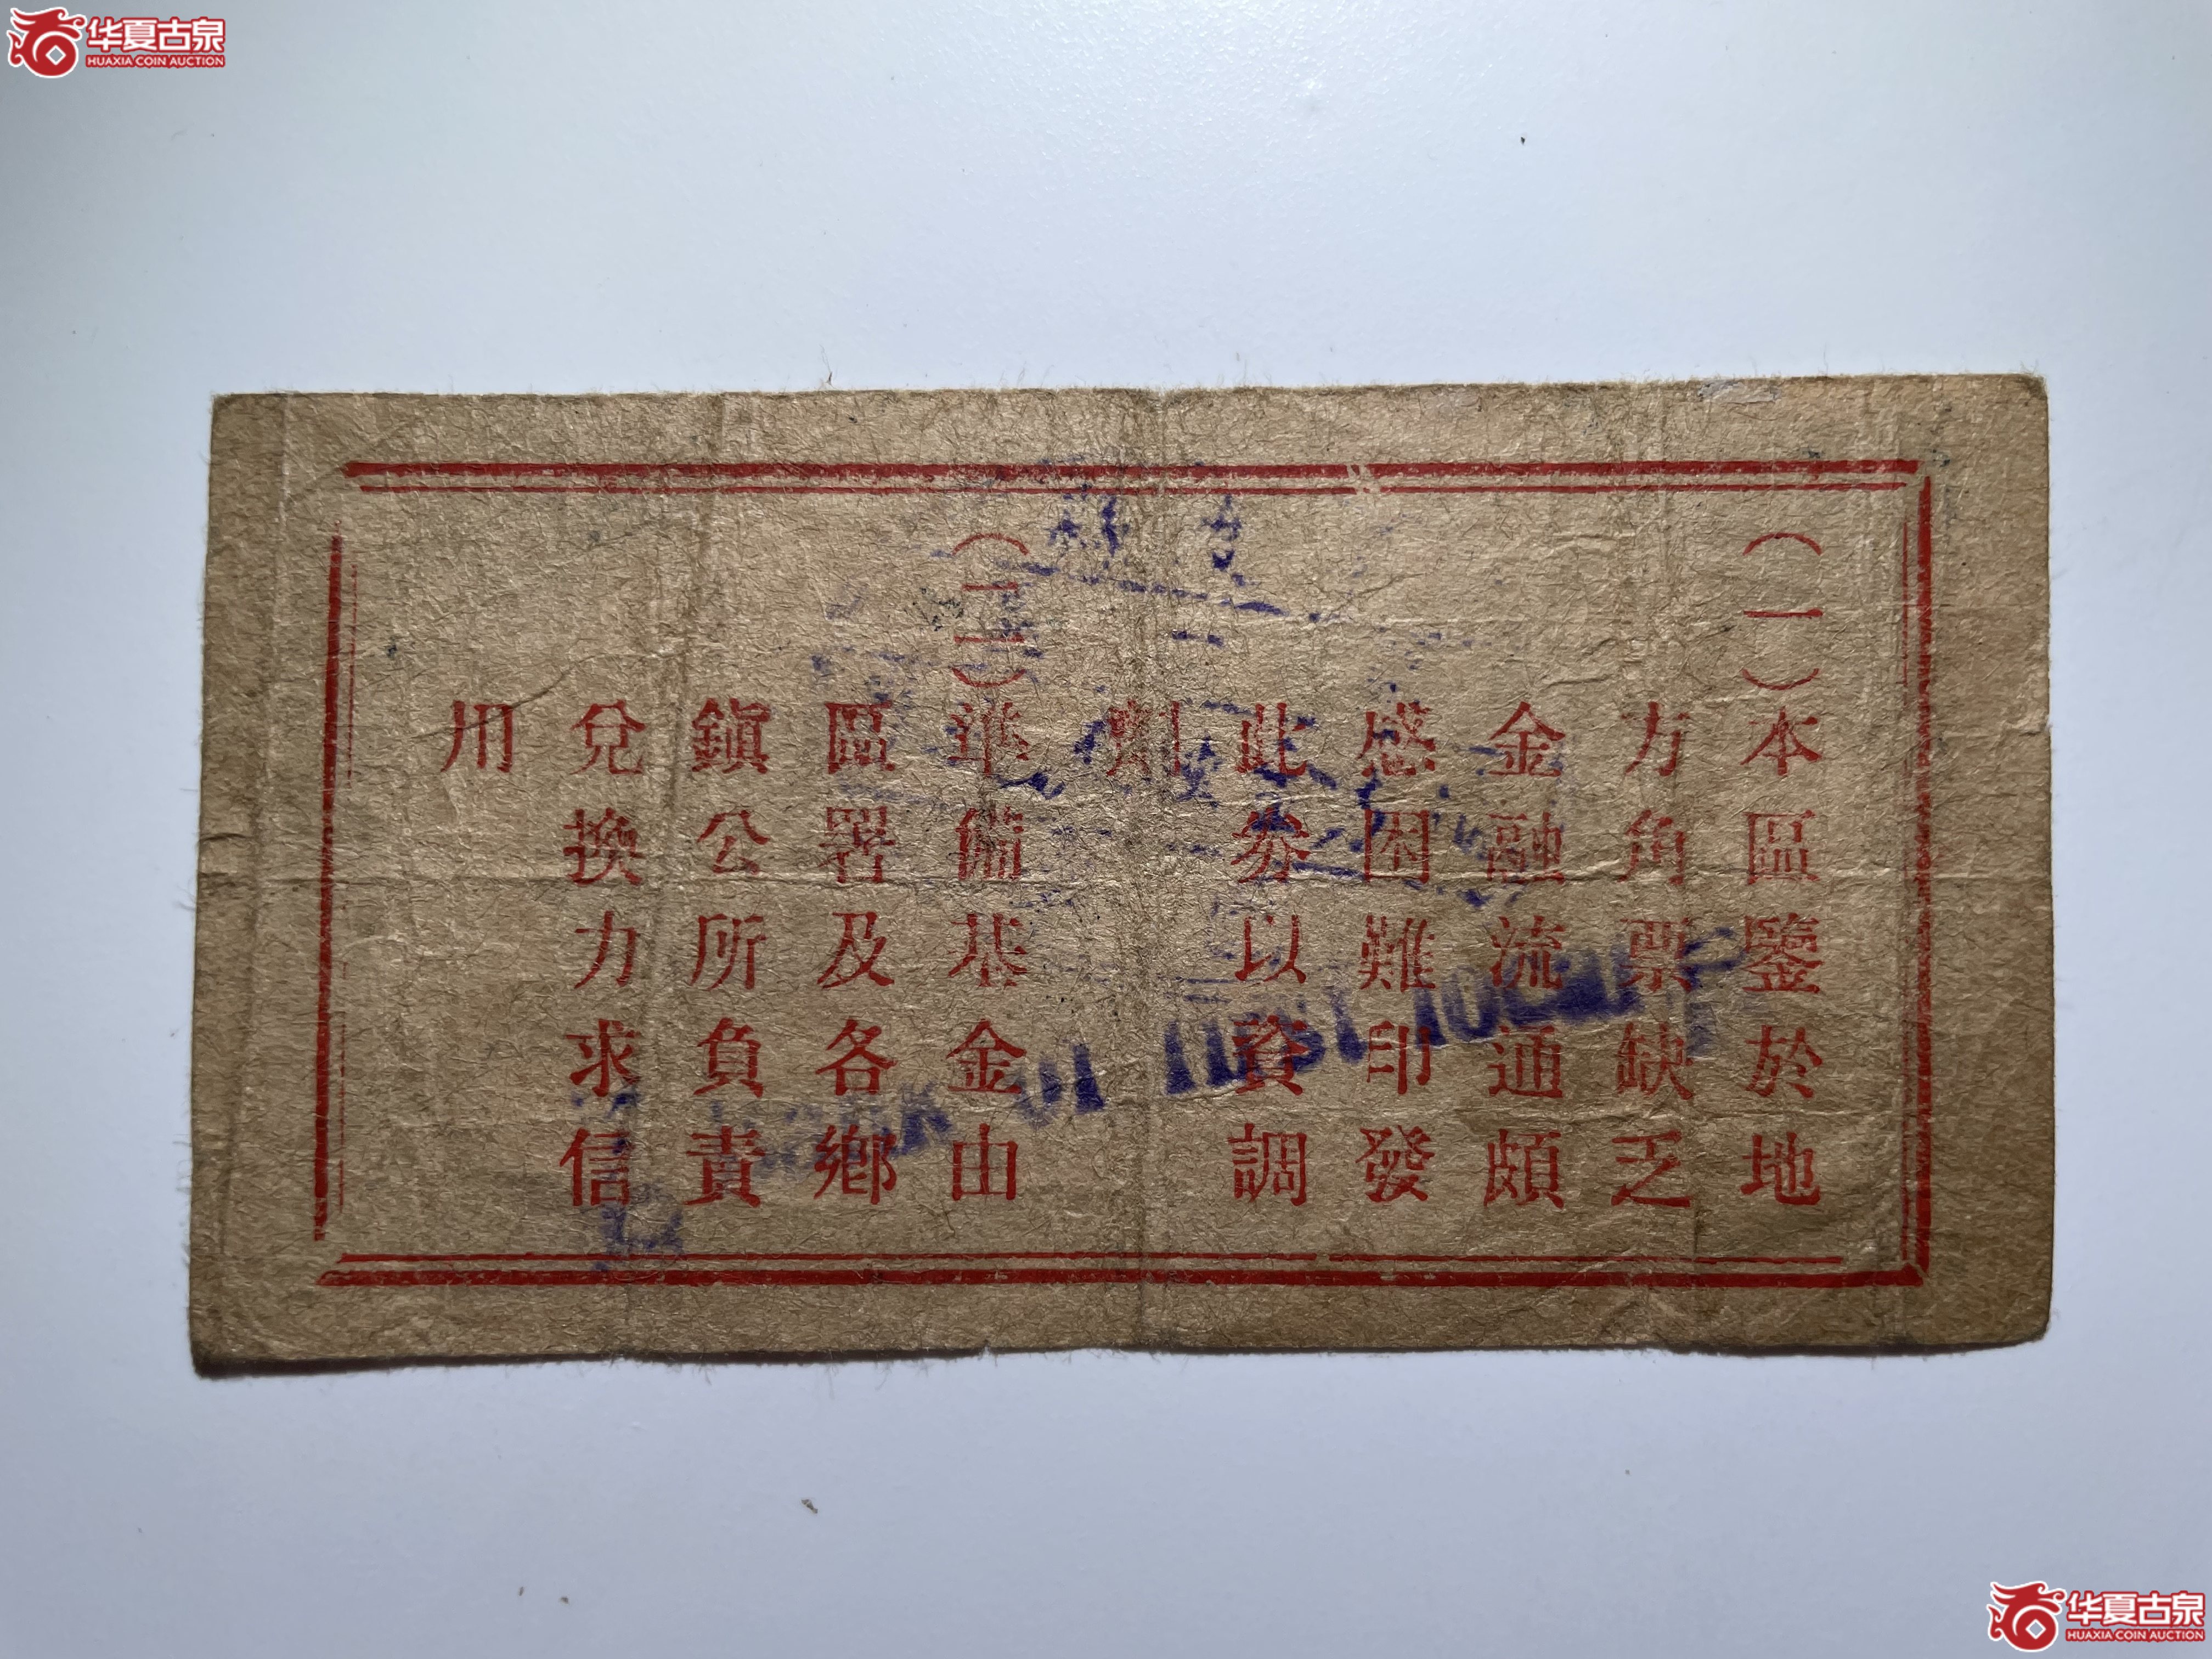 华夏古泉
HUAXIA COIN AUCTION
（一）本區鑒於地
方角票缺乏
金融流通頗
感困難印發
此券以資調
劑
（二）準備基金由
區署及各鄉
鎭公所負責
兌換力求信
用
华夏古泉
HUAXIA COIN AUCTION